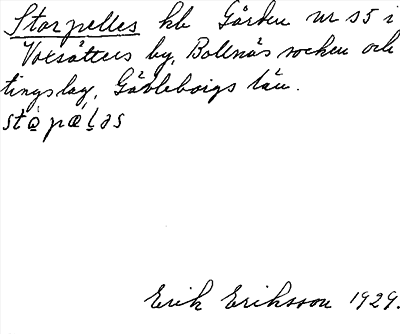 Storpelles kb Gården nr 5 i
Voxsätters by, Bollnäs socken och
tingslag, Gävleborgs län.
Erik Eriksson 1929.